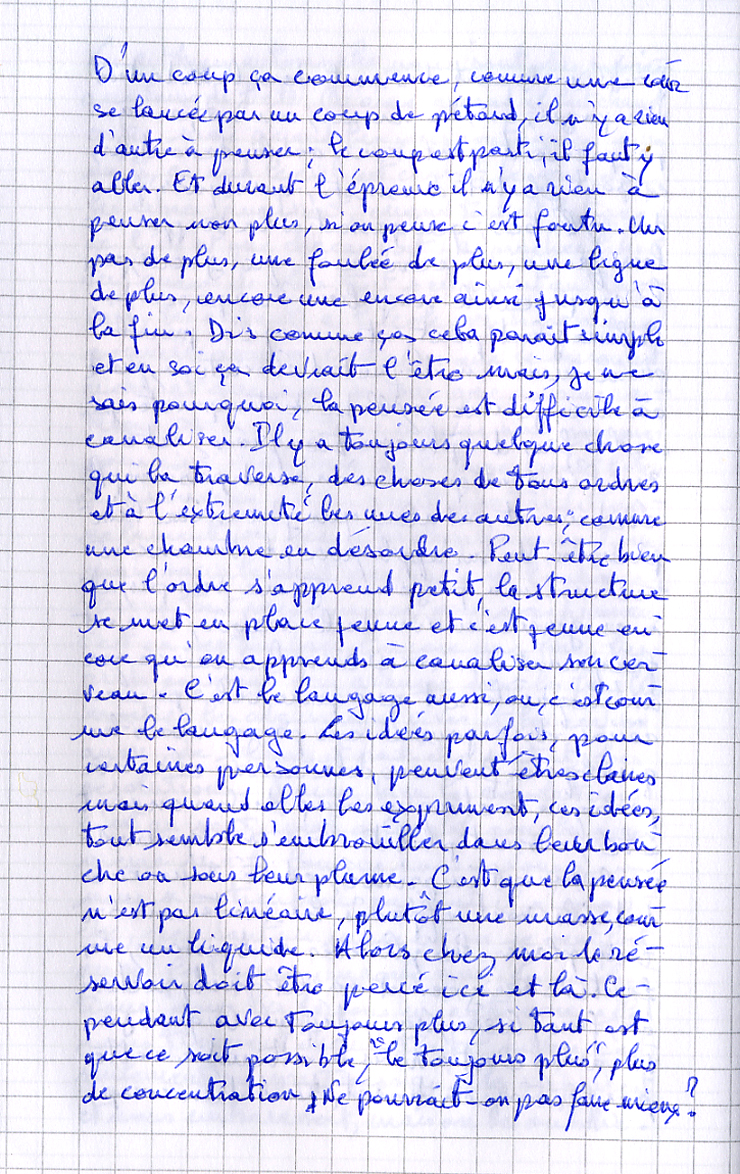 D'un coup ça commence, comme une cour
se lancée par un coup de pétard, il n'y a rien
d'autre à penser ; le coup est parti, il faut y
aller. Et durant l'épreuve il n'y a rien à
penser non plus, si on pense c'est foutu. Un
pas de plus, une foulée de plus, une ligne
de plus, encore une encore ainsi jusqu'à
la fin. Dis comme ças cela parait simple
et en soi ça devrait l'être mais, je ne
sais pourquoi, la pensée est difficile à
canaliser. Il y a toujours quelque chose
qui la traverse, des choses de tous ordres
et à l'extremité les unes des autres ; comme
une chambre en désordre. Peut-être bien
que l'ordre s'apprend petit, la structure
se met en place jeune et c'est jeune en-
core qu'on apprends à canaliser son cer-
veau. C'est le langage aussi, ou, c'est com-
me le langage. Les idées parfois, pour
certaines personnes, peuvent êtres claires
mais quand elles les expriment, ces idées,
tout semble s'embrouiller dans leur bou-
che ou sous leur plume. C'est que la pensée
n'est pas linéaire, plutôt une masse, com-
me un liquide. Alors chez moi le ré-
servoir doit être percé ici et là. Ce-
pendant avec toujours plus, si tant est
que ce soit possible, "le toujours plus", plus
de concentration, Ne pourrait-on pas faire mieux ?